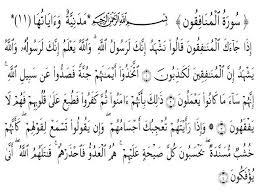 ﴿ سُورَةُ الْمُنَافِقُونَ ﴾ بِسْمِ اللَّهِ الرَّحْمَٰنِ الرَّحِيمِ *مَدَنِيَّةٌ وَءَايَاتُهَا (١١)*
إِذَا جَاءَكَ الْمُنَافِقُونَ قَالُوا نَشْهَدُ إِنَّكَ لَرَسُولُ اللَّهِ وَاللَّهُ يَعْلَمُ إِنَّكَ لَرَسُولُهُ وَاللَّهُ
يَشْهَدُ إِنَّ الْمُنَافِقُونَ لَكَاذِبُونَ ۝ اتَّخَذُوا أَيْمَانَهُمْ جُنَّةً فَصَدُّوا عَن سَبِيلِ اللَّهِ
إِنَّهُمْ سَاءَ مَا كَانُوا يَعْمَلُونَ ۝ ذَٰلِكَ بِأَنَّهُمْ ءَامَنُوا ثُمَّ كَفَرُوا فَطُبِعَ عَلَىٰ قُلُوبِهِمْ فَهُمْ لَا
يَفْقَهُونَ ۝ وَإِذَا رَأَيْتَهُمْ تُعْجِبُكَ أَجْسَامُهُمْ وَإِن يَقُولُوا تَسْمَعْ لِقَوْلِهِمْ كَأَنَّهُمْ
خُشُبٌ مُّسَنَّدَةٌ يَحْسَبُونَ كُلَّ صَيْحَةٍ عَلَيْهِمْ هُمُ الْعَدُوُّ فَاحْذَرْهُمْ قَاتَلَهُمُ اللَّهُ أَنَّىٰ
يُؤْفَكُونَ ۝